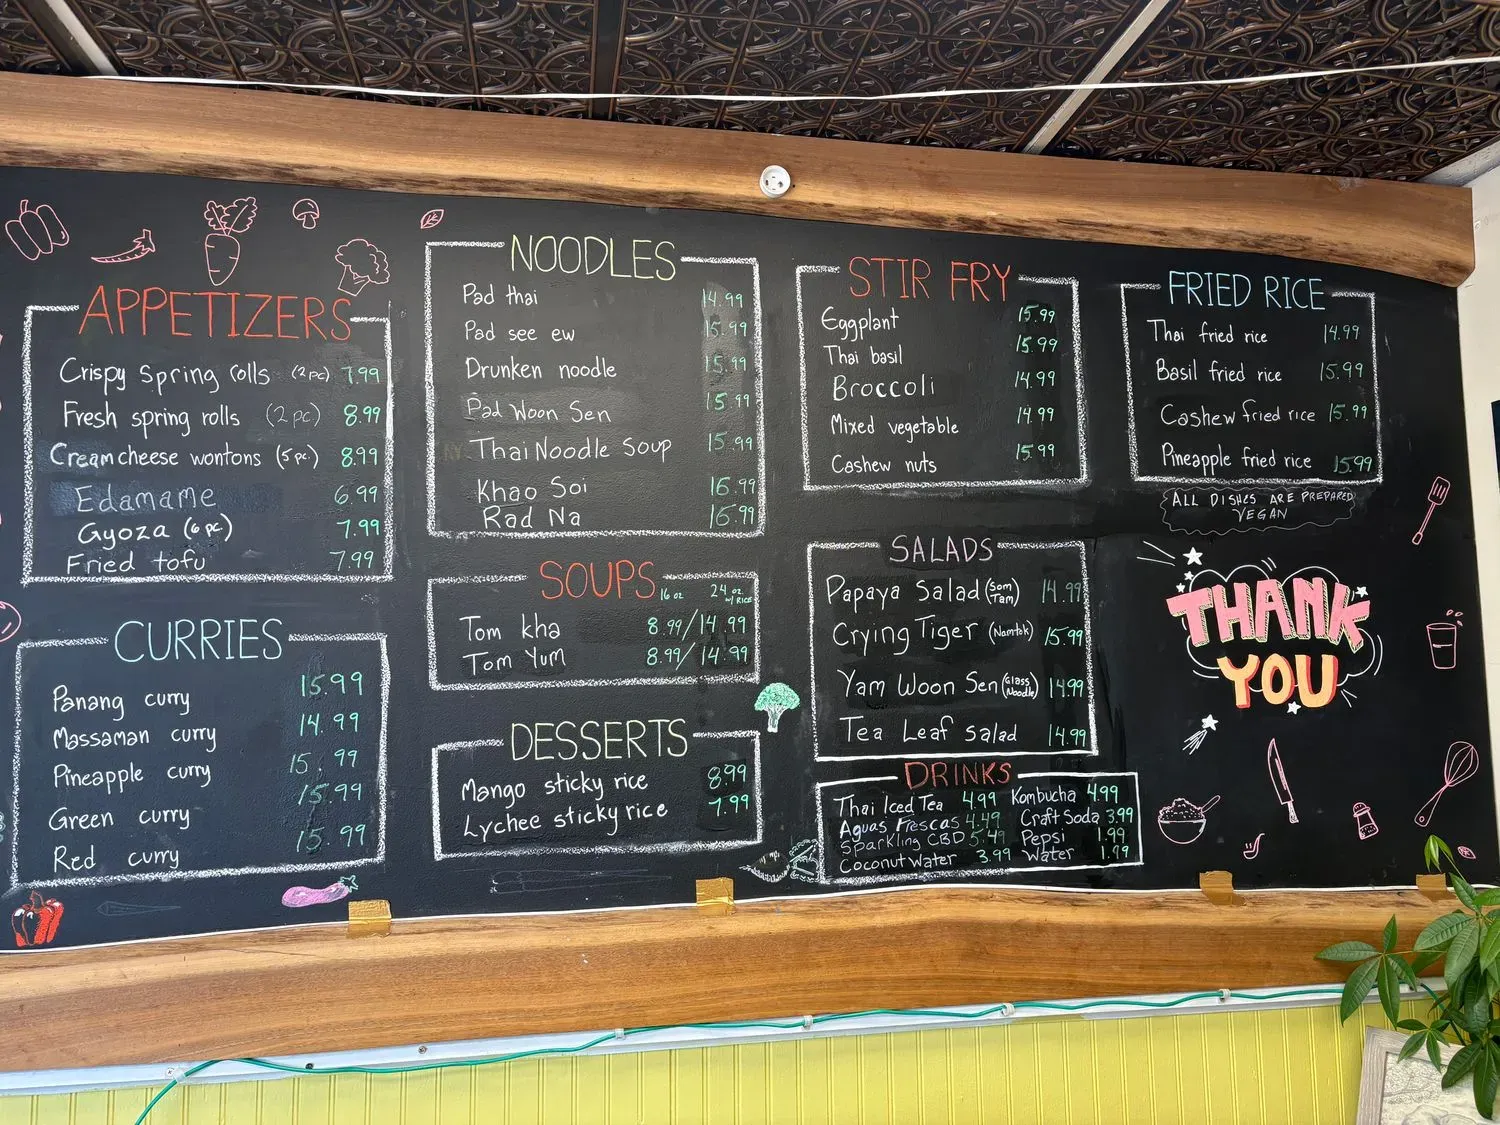 APPETIZERS
Crispy Spring rolls (2pc) 7.99
Fresh spring rolls (2pc) 8.99
Creamcheese wontons (5pc) 8.99
Edamame 6.99
Gyoza (6pc) 7.99
Fried tofu 7.99
CURRIES
Panang curry 15.99
Massaman curry 14.99
Pineapple curry 15.99
Green curry 15.99
Red curry 15.99
NOODLES
Pad thai 14.99
Pad see ew 15.99
Drunken noodle 15.99
Pad Woon Sen 15.99
Thai Noodle Soup 15.99
Khao Soi 16.99
Rad Na 16.99
SOUPS 16 oz 24 oz w/ RICE
Tom kha 8.99/14.99
Tom Yum 8.99/14.99
DESSERTS
Mango sticky rice 8.99
Lychee sticky rice 7.99
STIR FRY
Eggplant 15.99
Thai basil 15.99
Broccoli 14.99
Mixed vegetable 14.99
Cashew nuts 15.99
SALADS
Papaya Salad (Som Tam) 14.99
Crying Tiger (Namtok) 15.99
Yam Woon Sen (Glass Noodle) 14.99
Tea Leaf Salad 14.99
DRINKS
Thai Iced Tea 4.99 Kombucha 4.99
Aguas Frescas 4.49 Craft Soda 3.99
Sparkling CBD 5.49 Pepsi 1.99
Coconut water 3.99 Water 1.99
FRIED RICE
Thai fried rice 14.99
Basil fried rice 15.99
Cashew fried rice 15.99
Pineapple fried rice 15.99
ALL DISHES ARE PREPARED
VEGAN
THANK
YOU